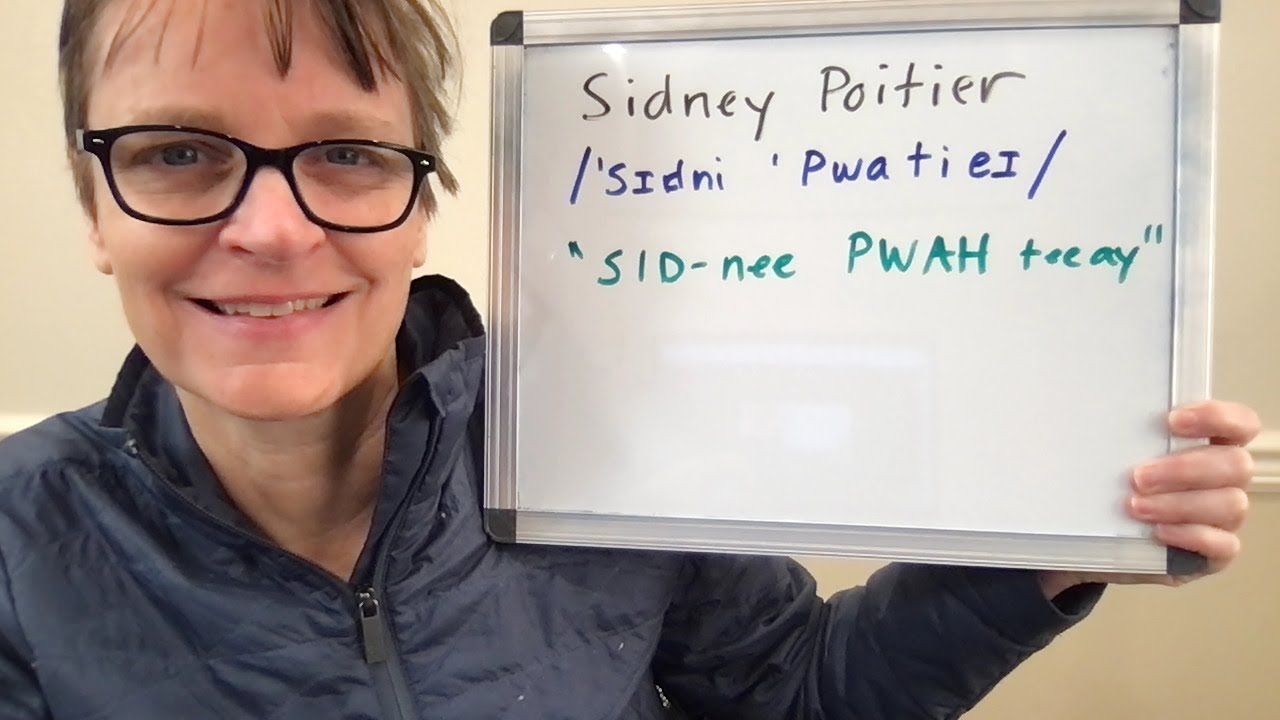 Sidney Poitier
/'sɪdni 'Pwatieɪ/
"SID-nee PWAH teeay"